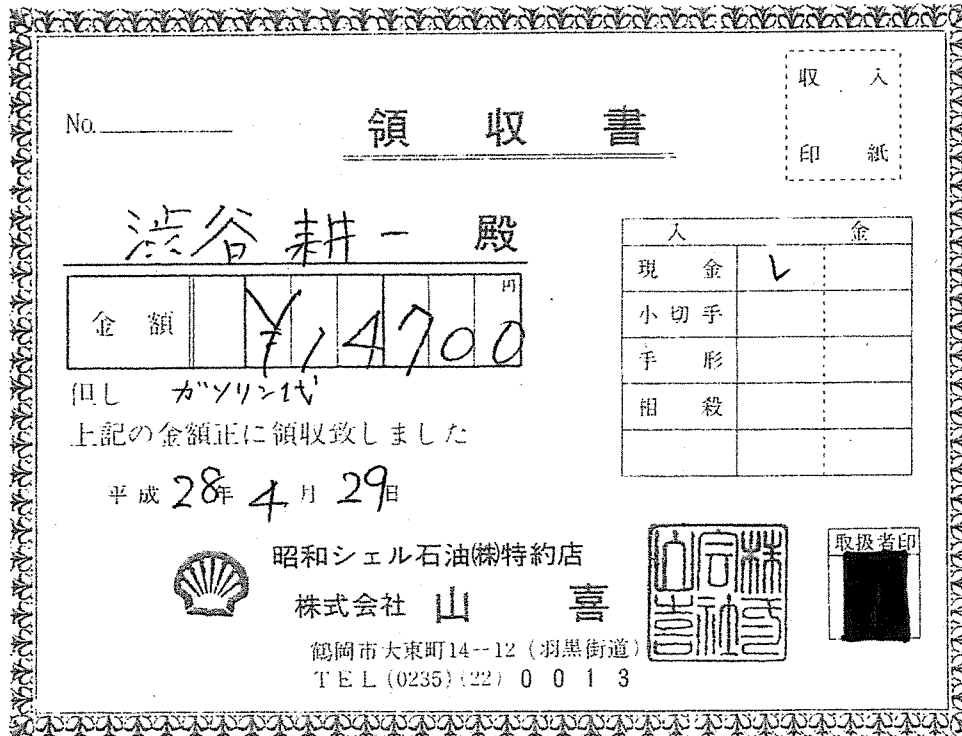 No.
領収書
収入
印紙
渋谷耕一 殿
金額 ¥14700 円
但し ガソリン代
上記の金額正に領収致しました
平成28年4月29日
入金
現金 レ
小切手
手形
相殺
昭和シェル石油㈱特約店
株式会社 山喜
鶴岡市大東町14--12(羽黒街道)
TEL(0235)(22)0013
株式会社山喜
取扱者印